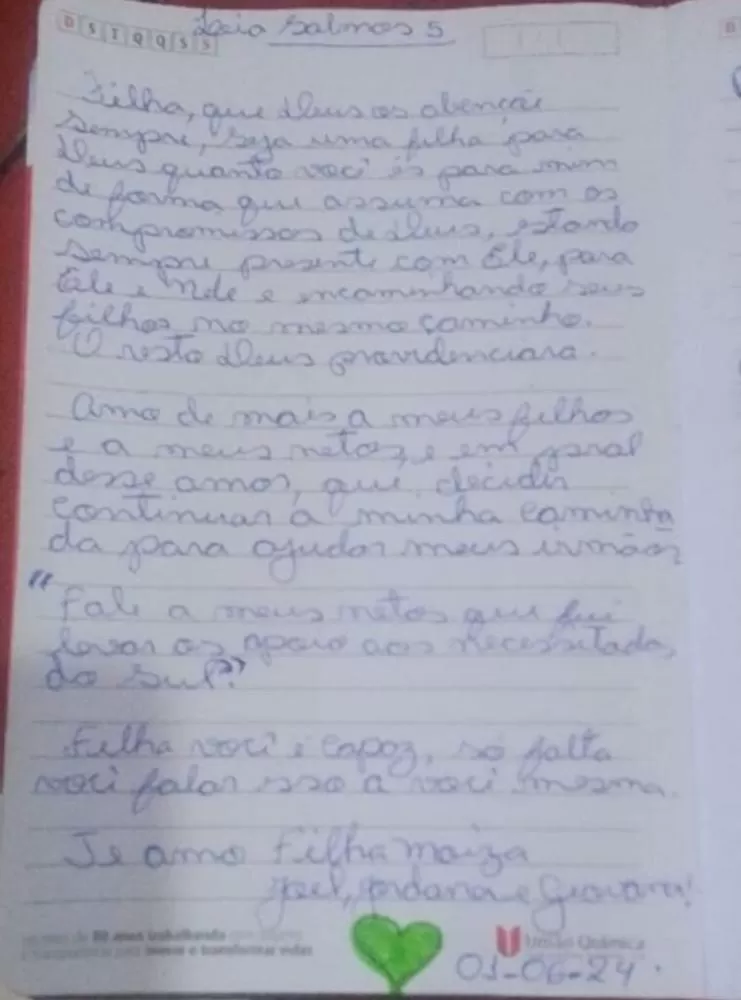 D S T Q Q S S
Leia Salmos 5
Filha, que Deus os abençõe
sempre, seja uma filha para
Deus quanto você és para mim
de forma que assuma com os
compromissos de Deus, estando
sempre presente com Ele, para
Ele e Nele e encaminhando seus
filhos no mesmo caminho.
O resto Deus providenciara.
Amo de mais a meus filhos
e a meus netos, e em geral
desse amor, que decidir
continuar a minha caminha
da para ajudar meus irmãos
"Fale a meus netos que fui
levar os apoio aos necessitados,
do Sul".
Filha você é capaz, só falta
você falar isso a você mesma.
Te amo Filha Maiza
Joel, Jordana e Geovana!
80 anos trabalhando
inovar e transformar vidas
União Química
01-06-24.